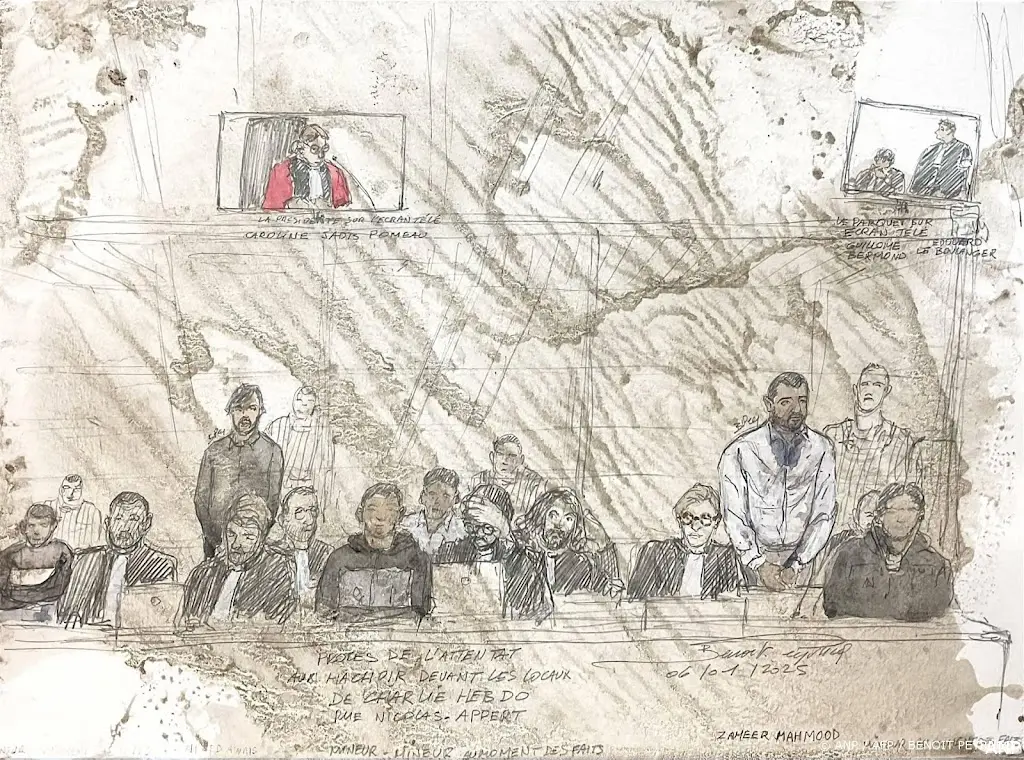 LA PRESIDENTE SUR L'ECRAN TÉLÉ
CAROLINE JADIS POMEAU
LE PARQUET SUR
ECRAN TELE
GUILLAUME
BERMOND
EDOUARD
LE BOULANGER
PROCES DE L'ATTENTAT
AU HACHOIR DEVANT LES LOCAUX
DE CHARLIE HEBDO
RUE NICOLAS-APPERT
Benoit Peyrucq
06/01/2025
ZAHEER MAHMOOD
MINEUR AU MOMENT DES FAITS
ANP / AFP // BENOIT PEYRUCQ